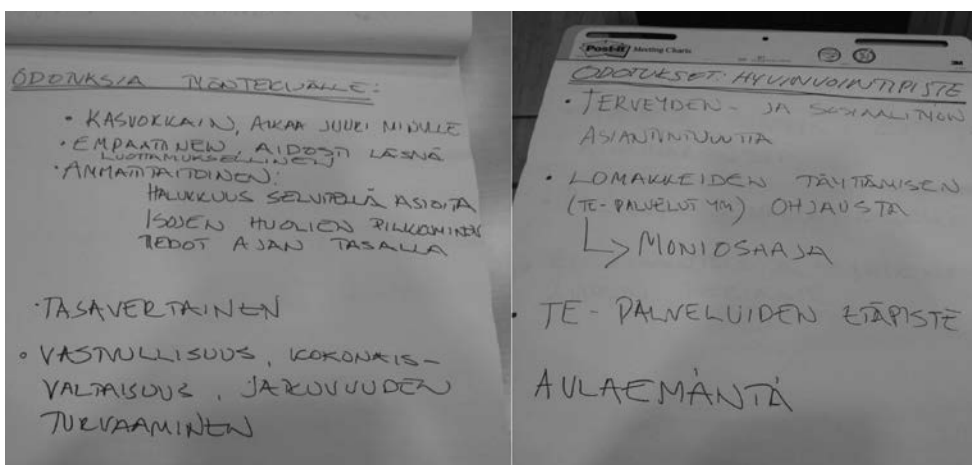 ODOTUKSIA TYÖNTEKIJÄLLE:
• KASVOKKAIN, AIKAA JUURI MINULLE
• EMPAATTINEN, AIDOSTI LÄSNÄ
LUOTTAMUKSELLINEN
• AMMATTITAITOINEN:
HALUKKUUS SELVITELLÄ ASIOITA
ISOJEN HUOLIEN PILKKOMINEN
TIEDOT AJAN TASALLA
• TASAVERTAINEN
• VASTUULLISUUS, KOKONAIS-
VALTAISUUS, JATKUVUUDEN
TURVAAMINEN
Post-it Meeting Charts
3M
ODOTUKSET: HYVINVOINTIPISTE
• TERVEYDEN- JA SOSIAALITYÖN
ASIANTUNTIJUUTTA
• LOMAKKEIDEN TÄYTTÄMISEN
(TE-PALVELUT YM) OHJAUSTA
↳ MONIOSAAJA
• TE-PALVELUIDEN ETÄPISTE
AULAEMÄNTÄ